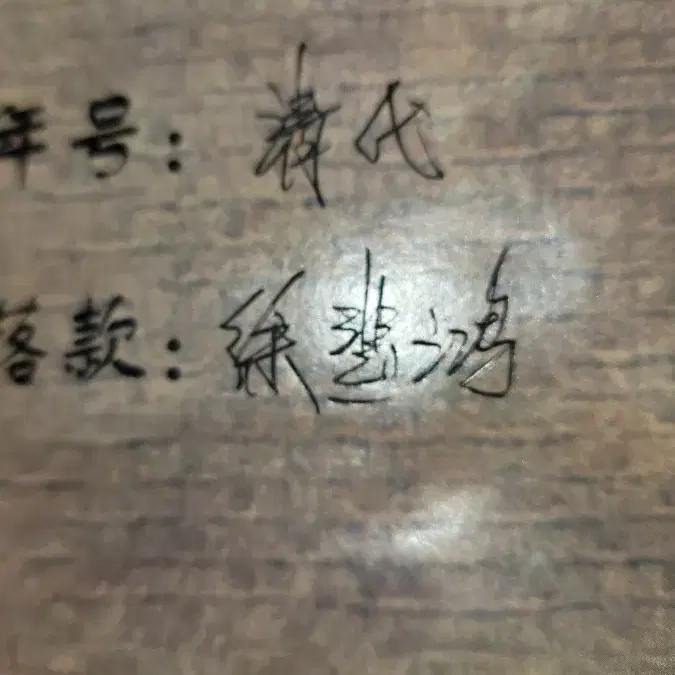 年号：清代
落款：徐悲鸿